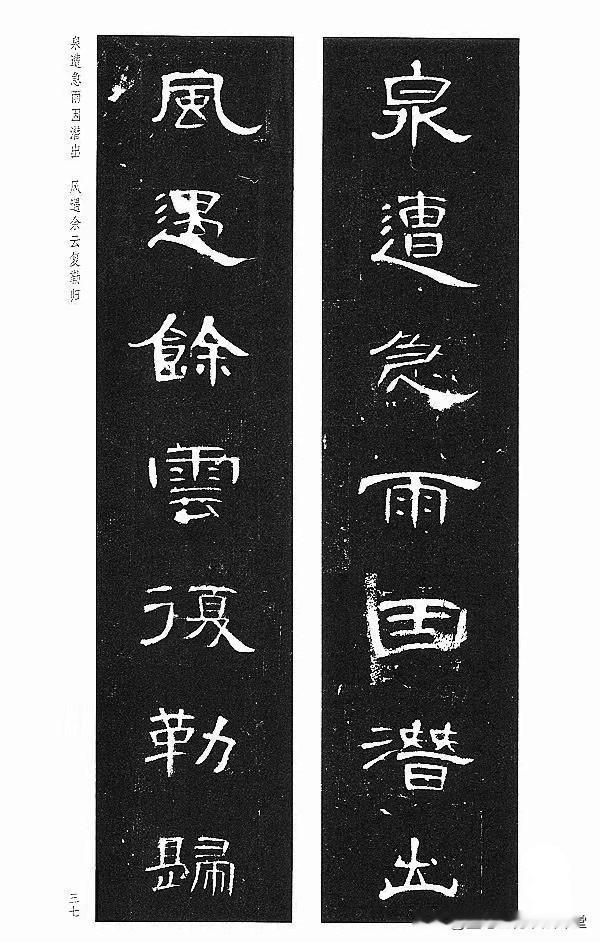 泉遭急雨因潜出
風遇餘雲復勒歸
泉遭急雨因潜出 风遇余云复勒归
三七